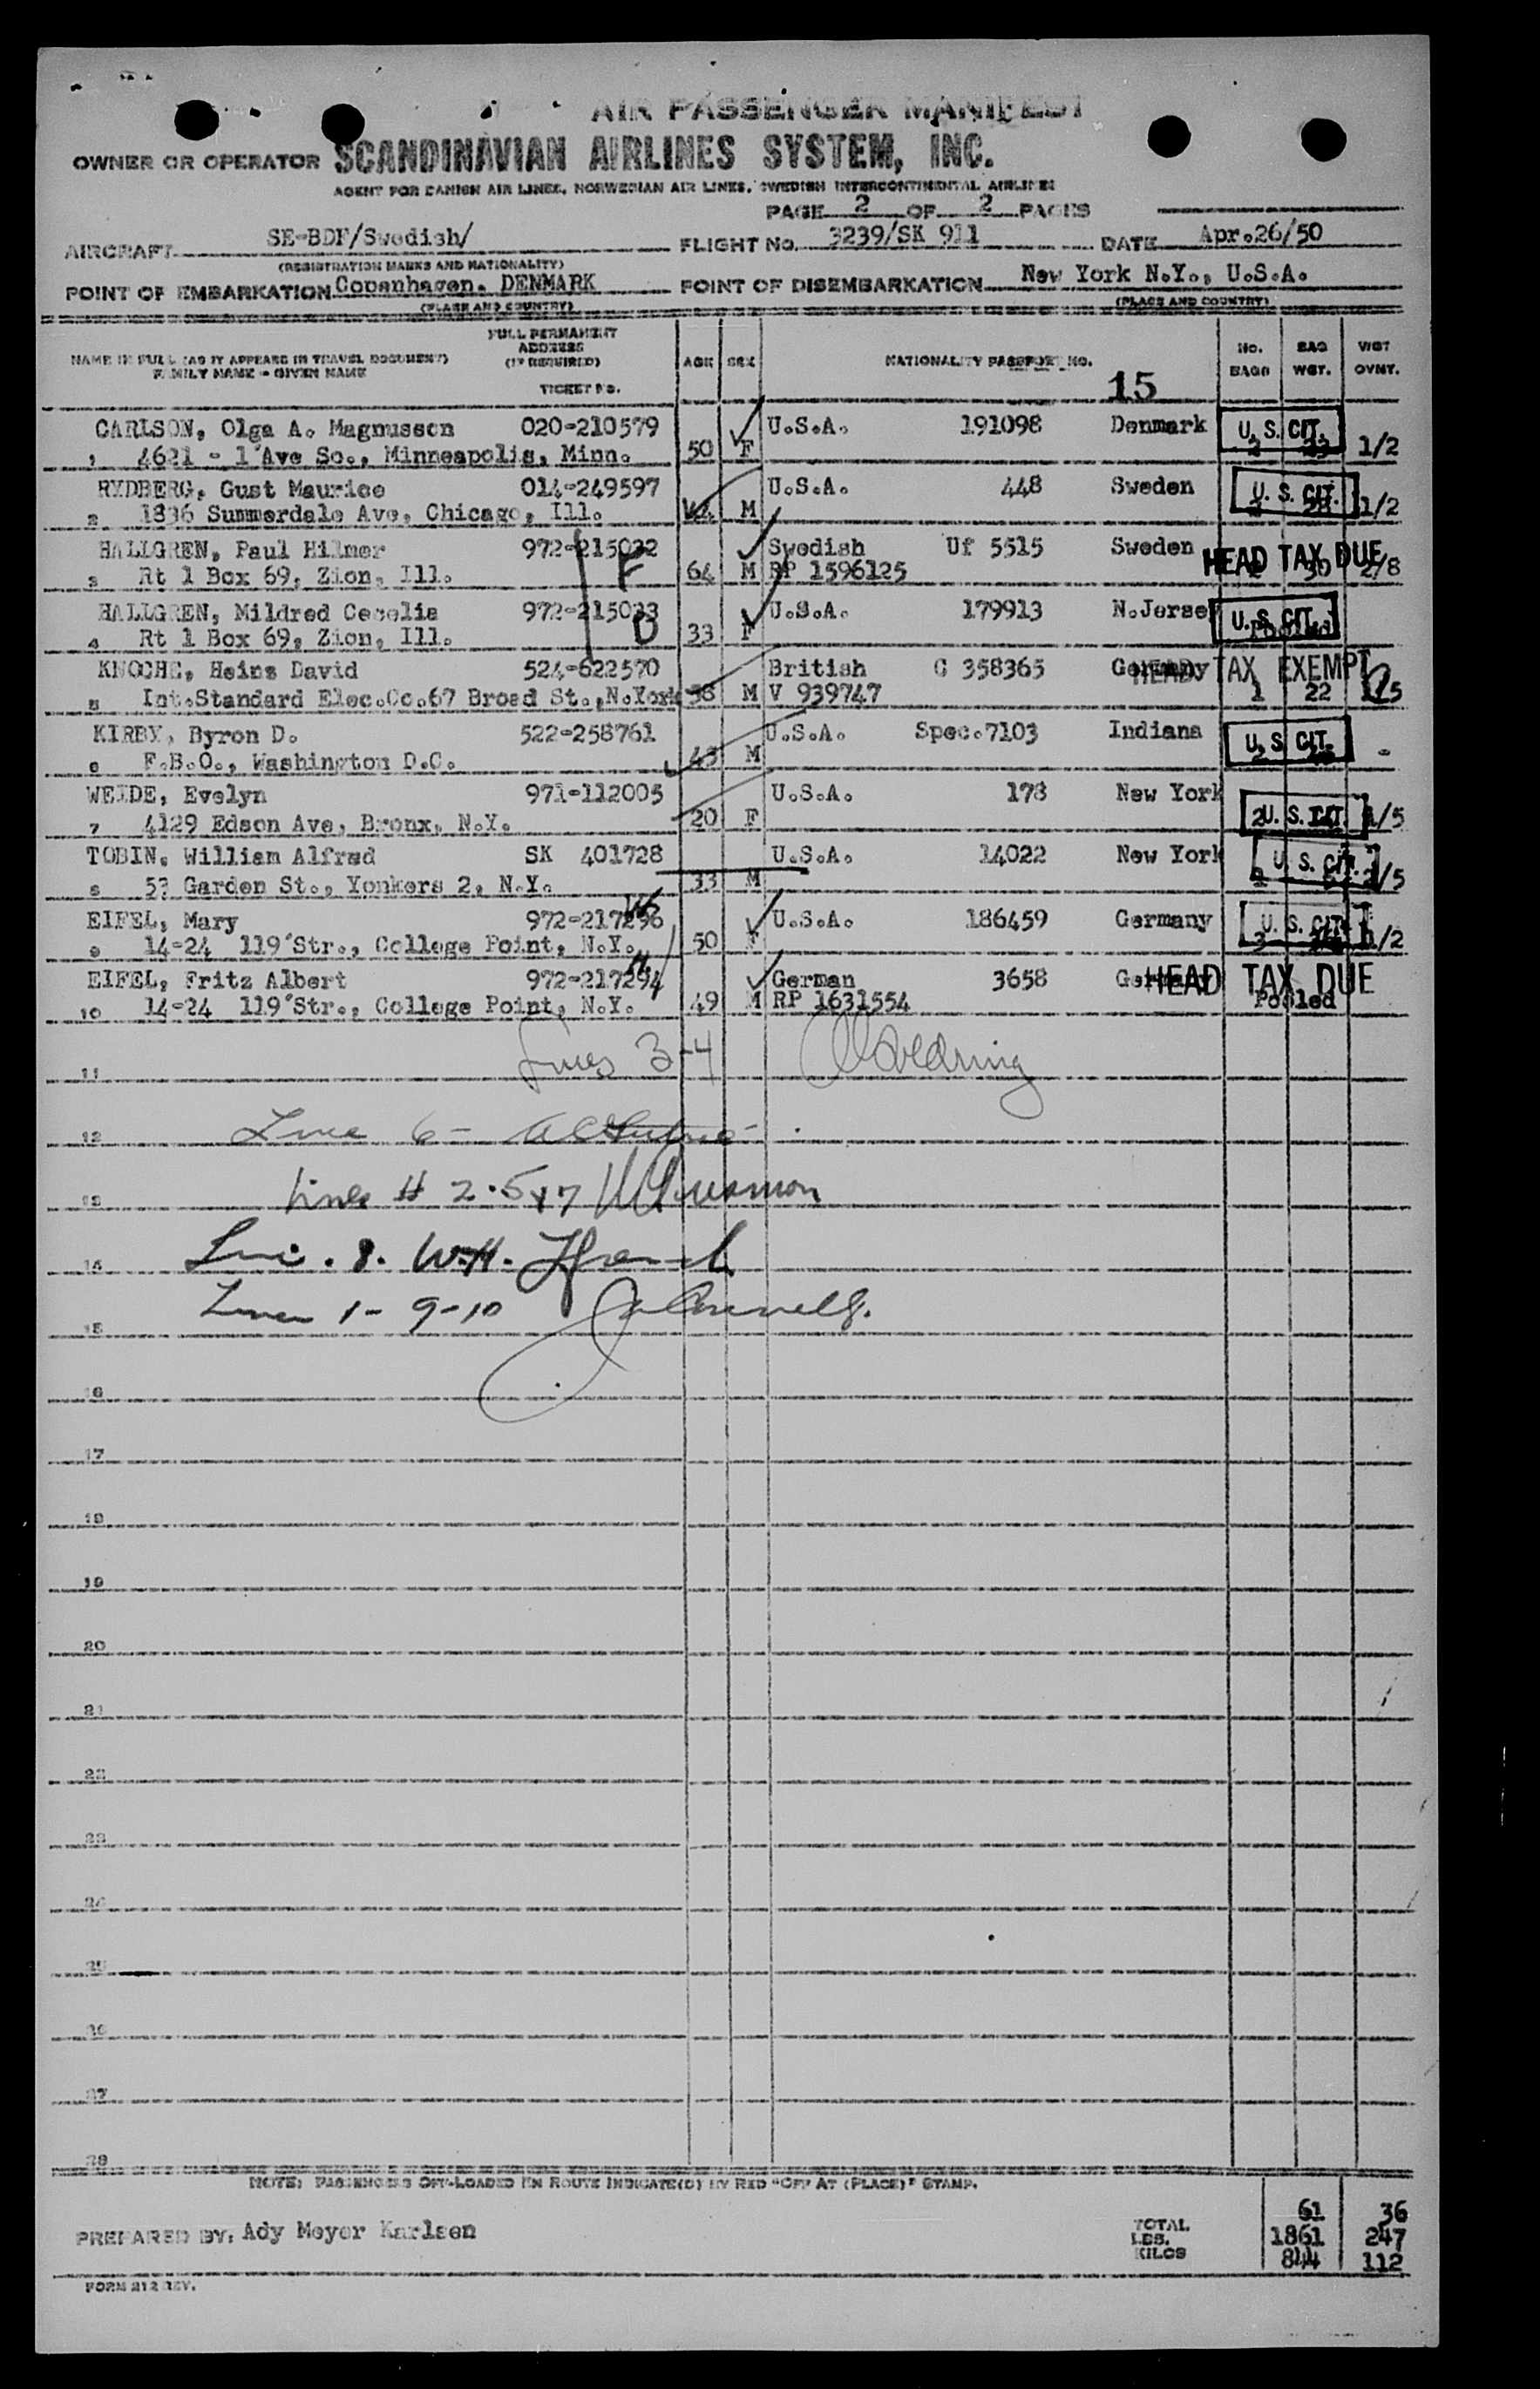 AIR PASSENGER MANIFEST
OWNER OR OPERATOR SCANDINAVIAN AIRLINES SYSTEM, INC.
AGENT FOR DANISH AIR LINES, NORWEGIAN AIR LINES, SWEDISH INTERCONTINENTAL AIRLINES
PAGE 2 OF 2 PAGES
AIRCRAFT SE-BDF/Swedish/ FLIGHT NO. 3239/SK 911 DATE Apr.26/50
(REGISTRATION MARKS AND NATIONALITY)
POINT OF EMBARKATION Copenhagen. DENMARK POINT OF DISEMBARKATION New York N.Y., U.S.A.
(PLACE AND COUNTRY) (PLACE AND COUNTRY)
NAME IN FULL (AS IT APPEARS IN TRAVEL DOCUMENT) FAMILY NAME - GIVEN NAME FULL PERMANENT ADDRESS (IF REQUIRED) TICKET NO. AGE SEX NATIONALITY PASSPORT NO. 15 NO. BAGS BAG WGT. WGT OVWT.
CARLSON, Olga A. Magnusson 020-210579 U.S.A. 191098 Denmark U.S. CIT.
1 4621 - 1'Ave So., Minneapolis, Minn. 50 F 2 23 1/2
RYDBERG, Gust Maurice 014-249597 U.S.A. 448 Sweden U. S. CIT.
2 1836 Summerdale Ave, Chicago, Ill. M 28 1/2
HALLGREN, Paul Hilmer 972-215022 F Swedish Uf 5515 Sweden HEAD TAX DUE
3 Rt 1 Box 69, Zion, Ill. 64 M RP 1596125 30 2/8
HALLGREN, Mildred Cecelia 972-215023 U.S.A. 179913 N.Jersey U.S. CIT.
4 Rt 1 Box 69, Zion, Ill. D 33 F Pooled
KNOCHE, Heinz David 524-622570 British C 358365 Germany HEAD TAX EXEMPT
5 Int.Standard Elec.Co.67 Broad St.,N.York 38 M V 939747 1 22 1/5
KIRBY, Byron D. 522-258761 U.S.A. Spec.7103 Indiana U.S. CIT.
6 F.B.O., Washington D.C. 43 M 2 -
WEIDE, Evelyn 971-112005 U.S.A. 178 New York
7 4129 Edson Ave, Bronx, N.Y. 20 F 2 U. S. CIT. 1/5
TOBIN, William Alfred SK 401728 U.S.A. 14022 New York U. S. CIT.
8 53 Garden St., Yonkers 2, N.Y. 33 M 2/5
EIFEL, Mary W 972-217296 U.S.A. 186459 Germany U. S. CIT.
9 14-24 119'Str., College Point, N.Y. 50 F 1/2
EIFEL, Fritz Albert H 972-217294 German 3658 Germany HEAD TAX DUE
10 14-24 119'Str., College Point, N.Y. 49 M RP 1631554 Pooled
11 Lines 3-4 Goldring
12 Line 6 -
13 Lines # 2.5 & 7
14 Line. 8. W.H.
15 Lines 1-9-10
16
17
18
19
20
21
22
23
24
25
26
27
28
NOTE: PASSENGERS OFF-LOADED EN ROUTE INDICATE(D) BY RED "OFF AT (PLACE)" STAMP.
PREPARED BY: Ady Meyer Karlsen
TOTAL 61 36
LBS. 1861 247
KILOS 844 112
FORM 212 REV.